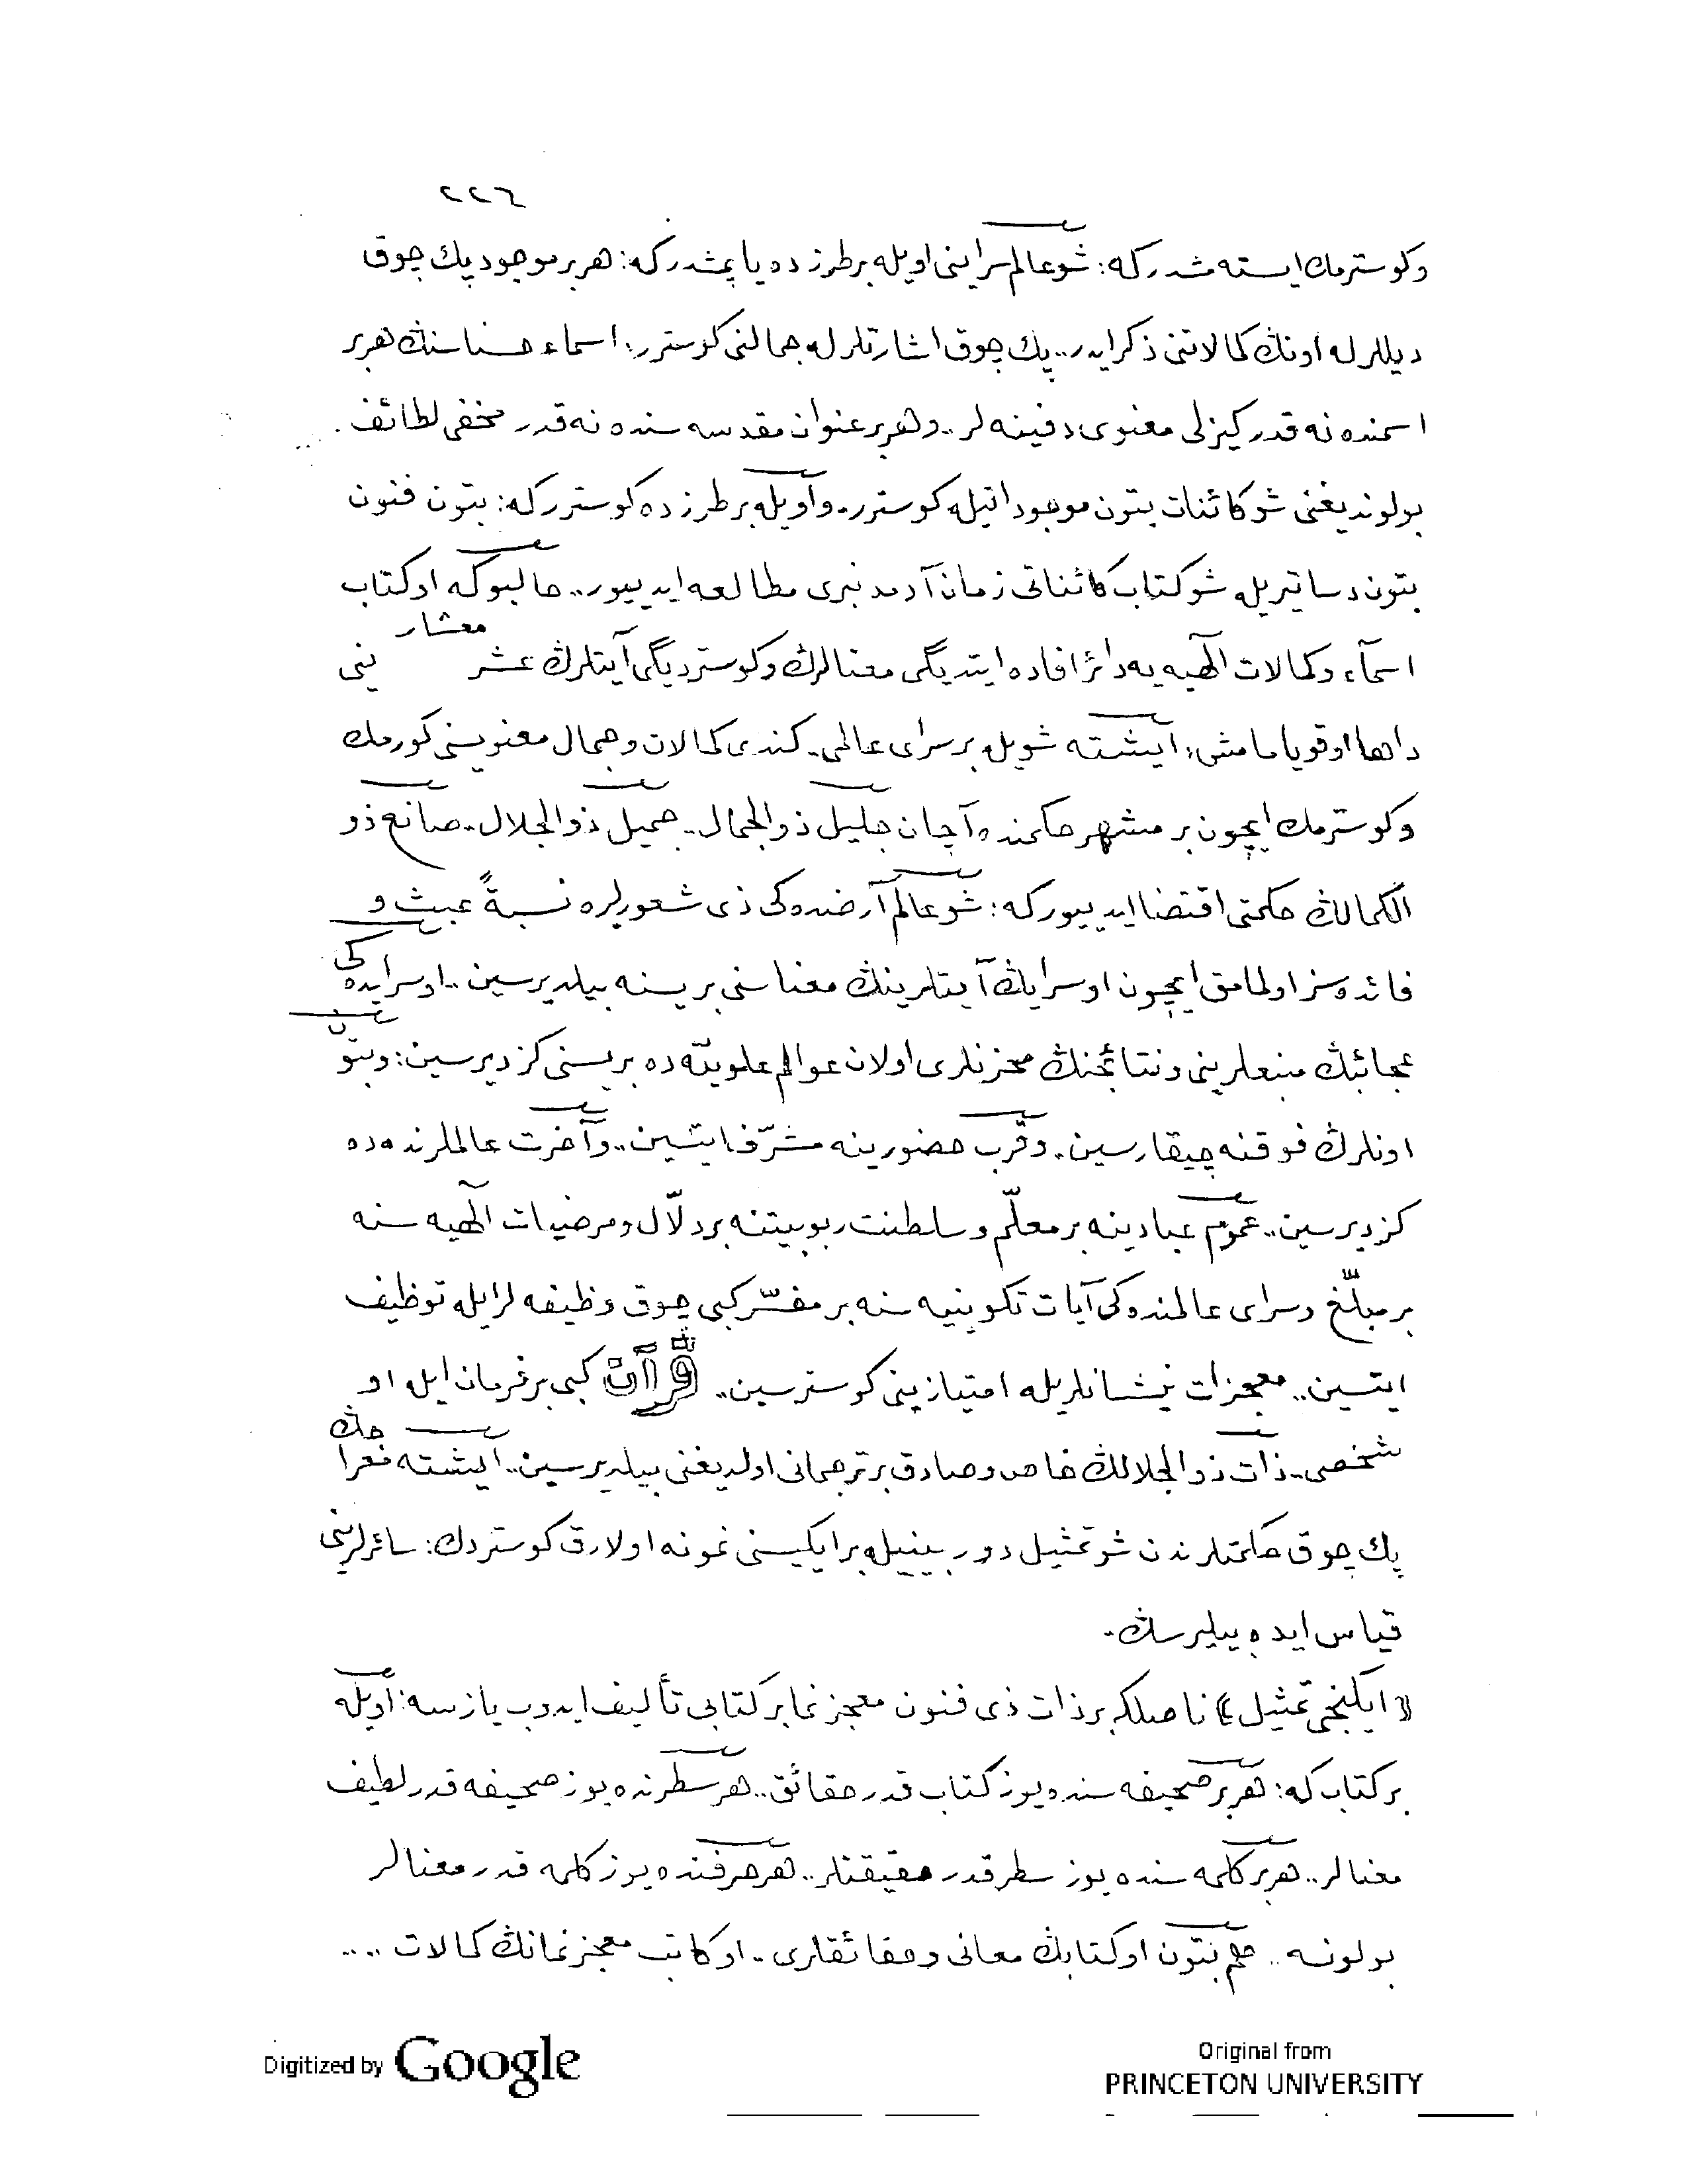 ٢٢٦
وكوسترمك ايسته مشدركه: شو عالم سراينى اويله برطرزده ياپمشدركه: هربر موجود پك چوق
ديللرله اونڭ كمالاتنى ذكرايدر.. پك چوق اشارتلرله جمالنى كوسترر. اسماء حسناسنڭ هربر
اسمنده نه قدر كيزلى معنوى دفينه لر.. وهربر عنوان مقدسه سنده نه قدر مخفى لطائف
بولونديغنى شو كائنات بتون موجوداتيله كوسترر. و اويله برطرزده كوستررکه: بتون فنون
بتون دساتيريله شو كتاب كائناتى زمان آدمدنبرى مطالعه ايدييور.. حالبوكه او كتاب
اسمآء وكمالات الٓهيه يه دائر افاده ايتديگى معنالرڭ وكوسترديگى آيتلرڭ عشر معشارينى
داها اوقوياما مش. ايشته شويله بر سراى عالمى. كندى كمالات وجمال معنويسنى كورمك
وكوسترمك ايچون بر مشهر حكمنده آچان جليل ذوالجمال. جميل ذوالجلال. صانع ذو
الكمالڭ حكمتى اقتضا ايدييوركه: شو عالم آرضده كى ذى شعورلره نسبةً عبث و
فائده سز اولمامق ايچون او سرايڭ آيتلرينڭ معناسنى بريسنه بيلديرسين.. او سرايده كى
عجائبڭ منبعلرينى ونتائجنڭ مخزنلرى اولان عوالم علويّه ده بريسنى كزديرسين: وبتون
اونلرڭ فوقنه چيقارسين. وقرب حضورينه مشرّف ايتسين.. وآخرت عالملرنده ده
كزديرسين.. عموم عبادينه بر معلّم و سلطنت ربوبيتنه بر دلّال ومرضيات الٓهيه سنه
بر مبلّغ وسراى عالمنده كى آيات تكوينيه سنه بر مفسّر كبى چوق وظيفه لرايله توظيف
ايتسين.. معجزات نيشانلريله امتيازينى كوسترسين.. قُرْآن كبى بر فرمان ايله او
شخصى. ذات ذوالجلالڭ خاص وصادق بر ترجمانى اولديغنى بيلديرسين.. ايشته معراجڭ
پك چوق حكمتلرندن شو تمثيل دوربينيله بر ايكيسنى نمونه اولارق كوستردك: سائرلرينى
قياس ايده بيليرسڭ.
﴿ايكنجى تمثيل﴾ ناصلكه بر ذات ذى فنون معجزنما بر كتابى تأليف ايدوب يازسه: اويله
بر كتاب كه: هربر صحيفه سنده يوز كتاب قدر حقائق.. هر سطرنده يوز صحيفه قدر لطيف
معنالر.. هربر كلمه سنده يوز سطر قدر حقيقتلر.. هر حرفنده يوز كلمه قدر معنالر
بولونسه.. هم بتون او كتابڭ معانى وحقائقلرى. او كاتب معجزنمانڭ كمالات ....
Digitized by Google
Original from
PRINCETON UNIVERSITY